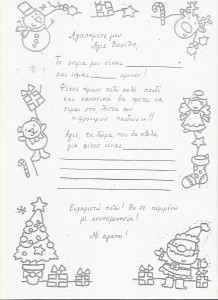 Αγαπημένε μου
Άγιε Βασίλη,
Το όνομά μου είναι
και είμαι χρονών!
Φέτος ήμουν πολύ καλό παιδί
και κανονικά θα πρέπει να
είμαι στη λίστα των
«φρόνιμων παιδιών»!!
Άγιε, το δώρο που θα ήθελα
για φέτος είναι
Ευχαριστώ πολύ! Θα σε περιμένω
με ανυπομονησία!
Με αγάπη!